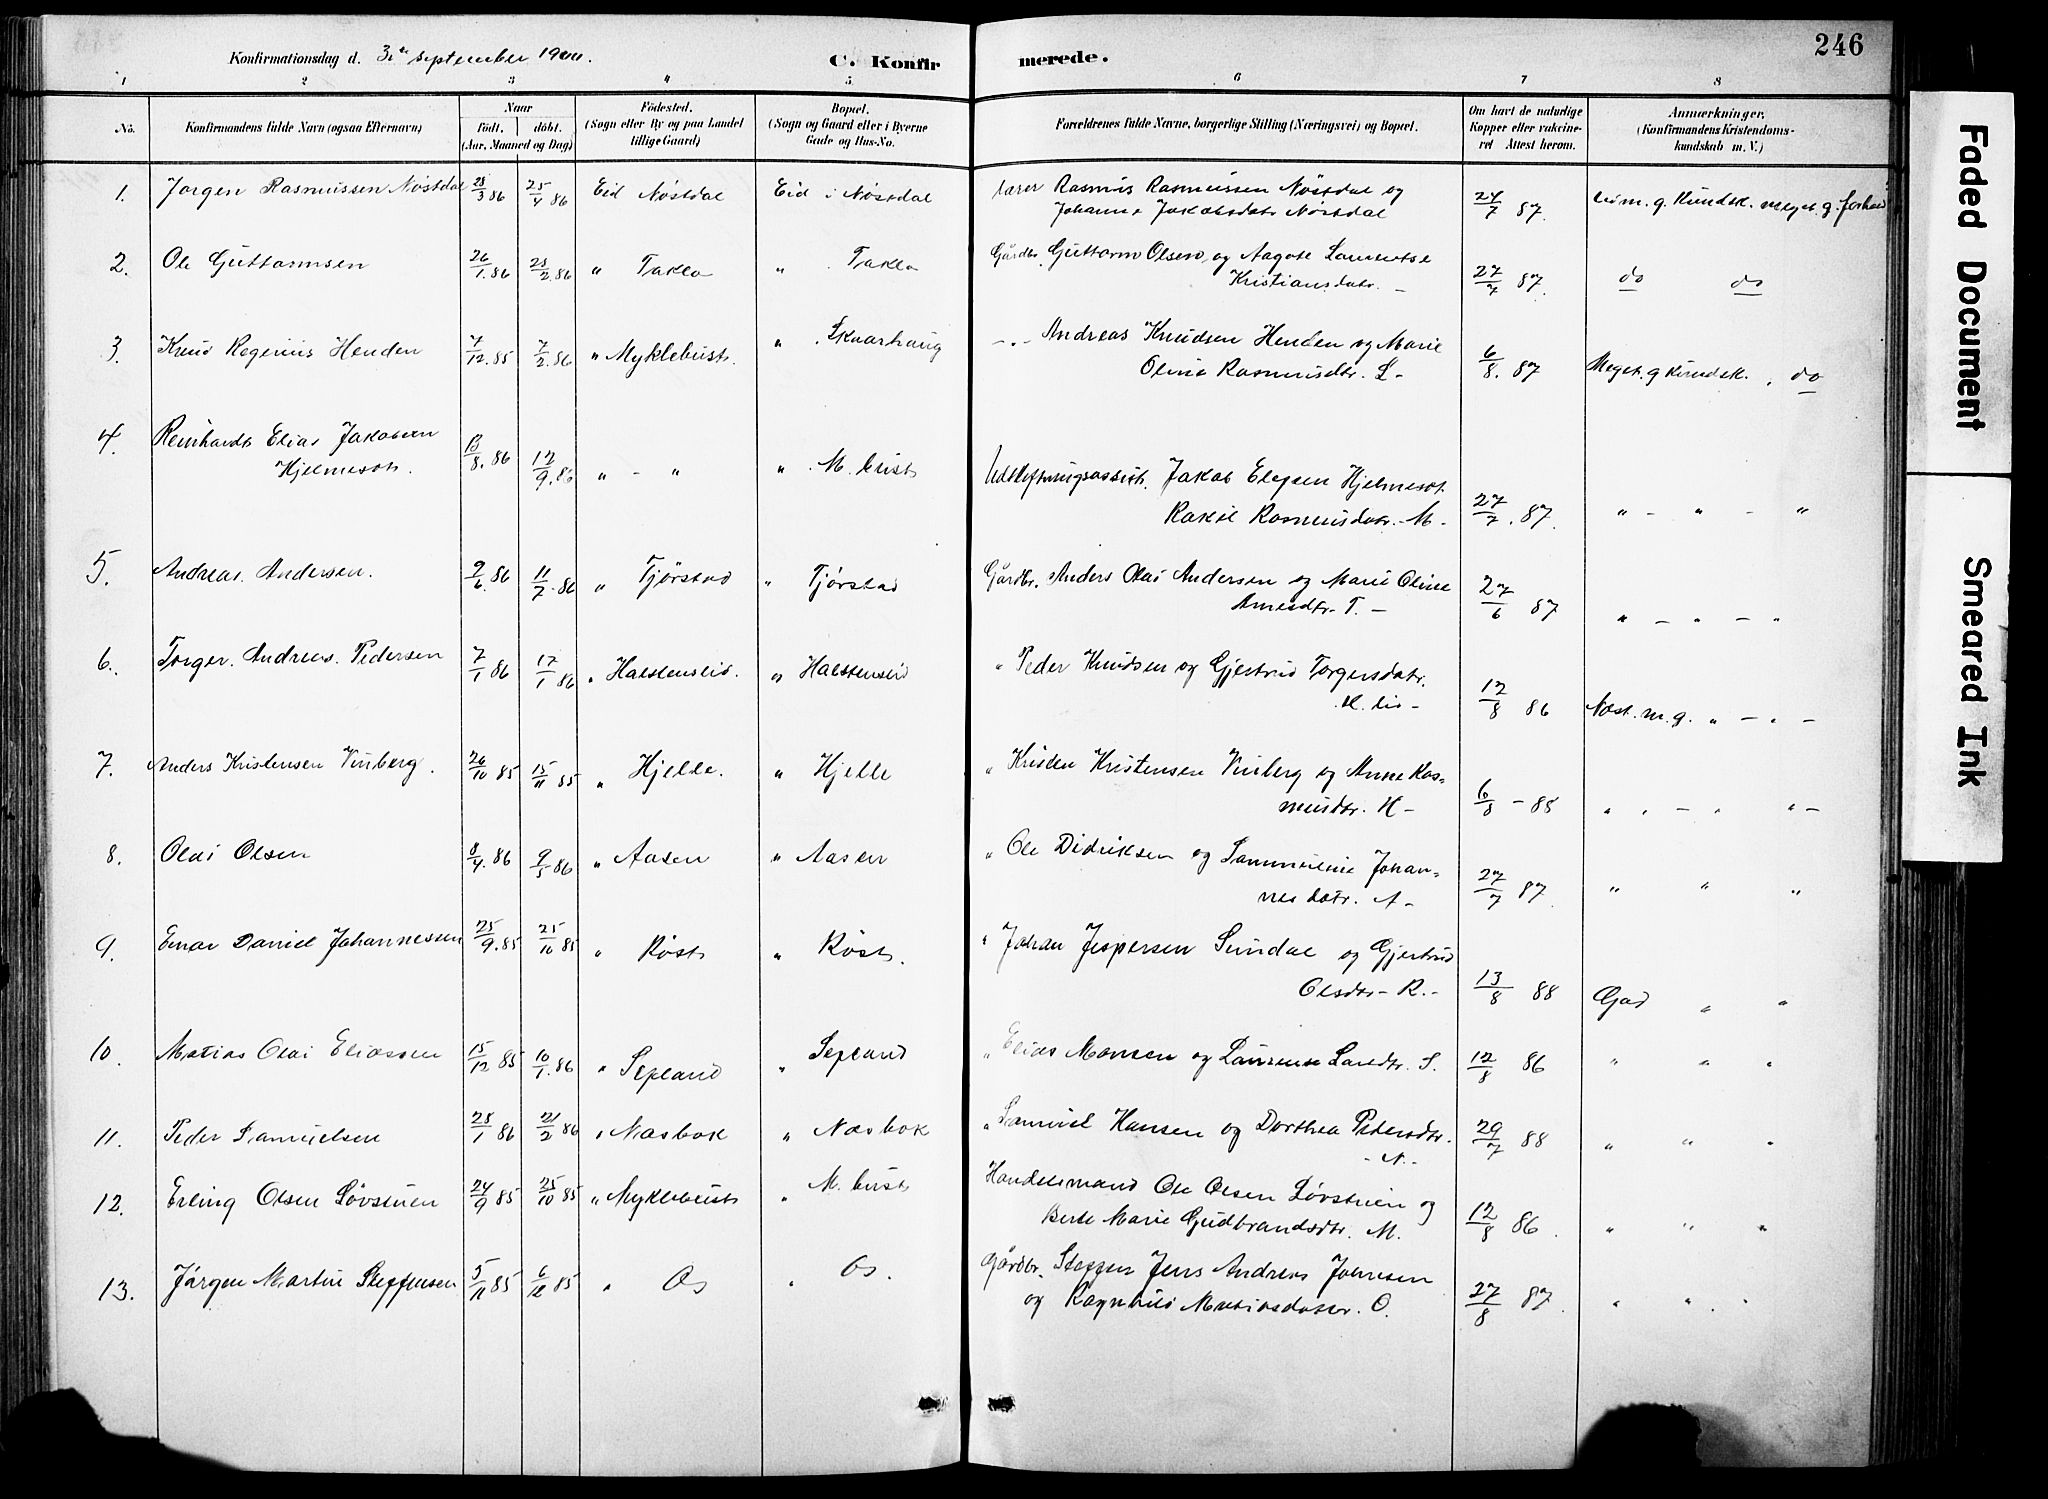 246
Konfirmationsdag d. 3die september 1900.
C. Konfirmerede.
1 2 3 4 5 6 7 8
No.
Konfirmandens fulde Navn (ogsaa Efternavn)
Naar
født. døbt.
(Aar, Maaned og Dag)
Fødested.
(Sogn eller By og paa Landet tillige Gaard)
Bopæl.
(Sogn og Gaard eller i Byerne Gade og Hus-No.
Forældrenes fulde Navne, borgerlige Stilling (Næringsvei) og Bopæl.
Om havt de naturlige Kopper eller vakcineret Attest herom.
Anmærkninger.
(Konfirmandens Kristendomskundskab m. V.)
1. Jørgen Rasmussen Nøstdal 28/3 86 25/4 86 Eid Nøstdal Eid i Nøstdal Lærer Rasmus Rasmussen Nøstdal og
Johanne Jakobsdatr Nøstdal 24/7 87. g. Kundsk. meget g. forhold
2. Ole Guttormsen 26/1. 86 28/2. 86 " Taklo " Taklo Gårdbr. Guttorm Olsen og Aagote Laurentse
Kristiansdatr. - 27/7 87. do do
3. Knud Regenius Henden 7/12. 85 7/2. 86 " Myklebust. " Skaarhaug -"- Andreas Knudsen Henden og Marie
Oline Rasmusdtr. S- 6/8. 87 Meget g Kundsk. , do
4. Reinhardt Elias Jakobsen
Hjelmeset. 10/8. 86 12/9. 86 " - " " M.bust Udskiftningsassist. Jakob Elefsen Hjelmeset
Rakel Rasmusdatr. - M- 27/7. 87. " - " - "
5. Andreas Andersen. 9/6. 86 11/7. 86 " Tjørstad " Tjørstad Gårdbr. Anders Olai Andersen og Marie Oline
Arnesdtr. T. - 27/6 87 " - " - "
6. Torger Andreas Pedersen 7/1 86 17/1 86 " Halstenslid. " Halstenslid " Peder Knudsen og Gjertrud Torgersdatr.
H.lid - 12/8 86 Næst. m. g. " - " -
7. Anders Kristensen Vinberg. 26/10 85 15/11 85 " Hjelle. " Hjelle " Kristen Kristensen Vinberg og Anne Ras-
musdtr. H - 6/8 - 85 " " - " " -
8. Olai Olsen 8/4. 86 9/5 86 " Aasen " Aasen " Ole Didriksen og Sammeline Johan-
nesdatr. A- 27/7 87 " " "
9. Einar Daniel Johannessen 25/9. 85 25/10 85 " Røst " Røst. " Johan Jespersen Sundal og Gjertrud
Olsdtr - R. - 13/8 88 God " "
10. Matias Olai Eliassen 15/12 85 10/1. 86 " Sepland " Sepland " Elias Monsen og Laurense Larsdtr. S. 12/8 86 " " "
11. Peder Samuelsen 28/1 86 21/2 86 " Næsbak " Næsbak " Samuel Hansen og Dorthea Pedersdtr.
- N. - 29/7 88 " " "
12. Erling Olsen Løvstuen 24/9 85 25/10 85 " Myklebust " M.bust Handelsmand Ole Olsen Løvstuen og
Berte Marie Gudbrandsdtr. M. 12/8 86. " " "
13. Jørgen Martin Steffensen 5/11 85 6/12 85 " Os " Os. Gårdbr. Steffen Jens Andreas Johnsen
og Ragnhild Matiasdatter. O. 27/8 87. " " "
Faded Document
Smeared Ink